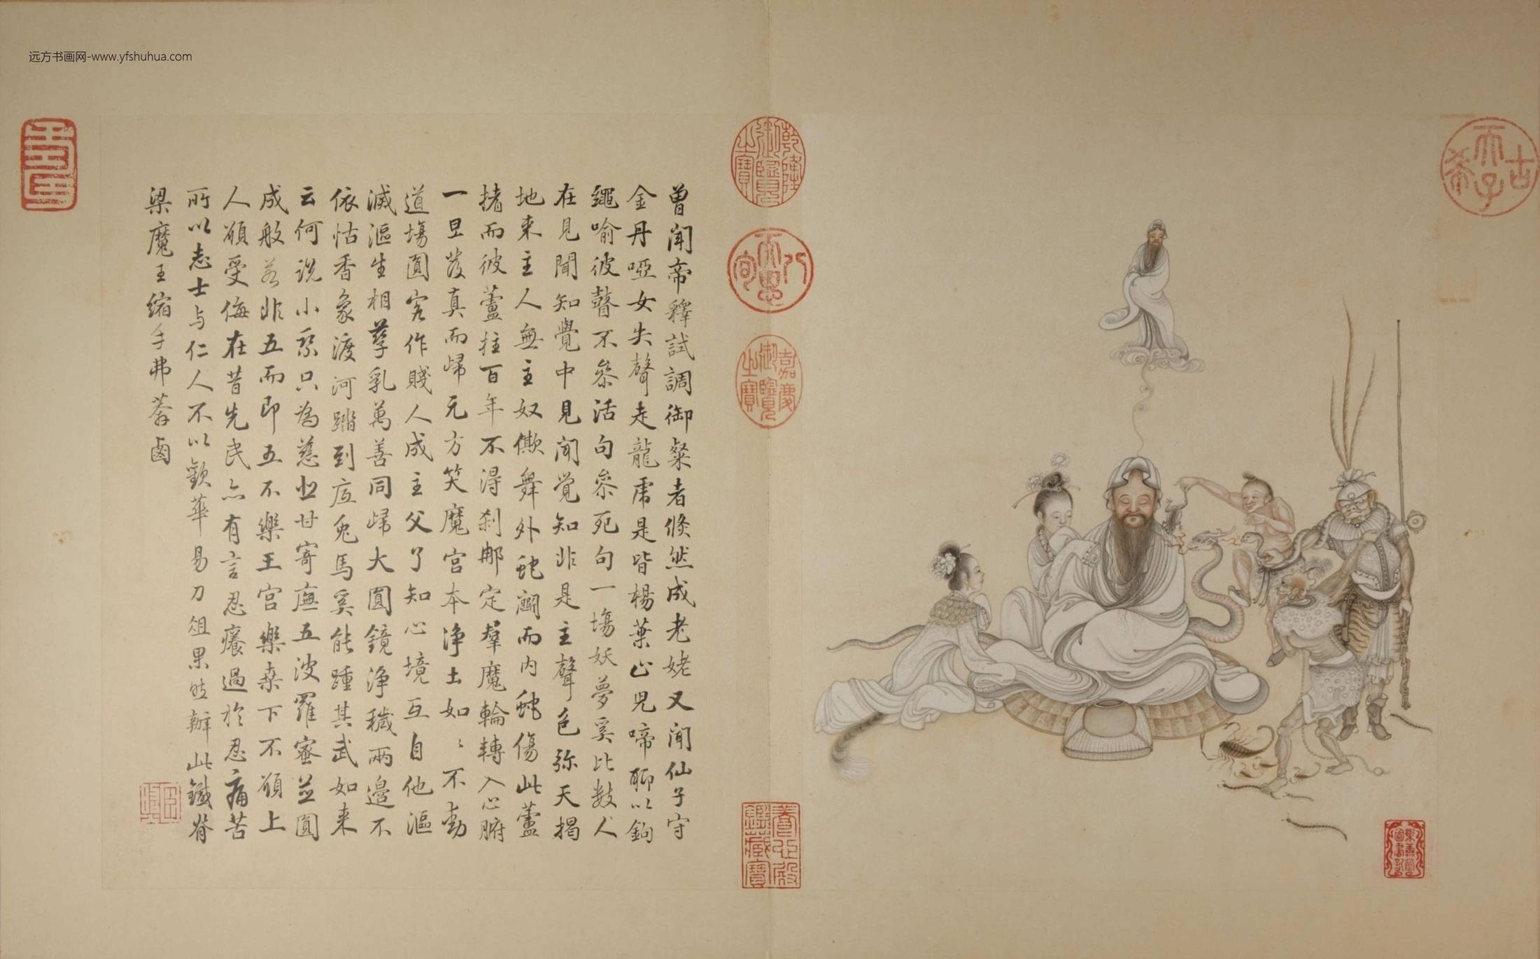 远方书画网-www.yfshuhua.com
古希天子
曾聞帝釋試調御粲者倏然成老姥又聞仙子守
金丹啞女失聲走龍虎是皆楊葉止兒啼聊以鉤
繩喻彼瞽不參活句參死句一塲妖夢奚比數人
在見聞知覺中見聞覺知非是主聲色弥天揭
地来主人無主奴僛舞外蛇鬭而内蛇傷此蘆
而彼蘆拄百年不得刹那定羣魔輪轉入心腑
一旦發真而歸元方笑魔宮本淨土如〻不動
道塲圓客作賤人成主父了知心境互自他漚
滅漚生相孳乳萬善同歸大圓鏡淨穢兩邊不
依怙香象渡河蹋到底兎馬奚能踵其武如来
云何説小乘只為慈悲甘寄廡五波羅蜜並圓
成般若非五而即五不樂王宮樂桑下不願上
人願受侮在昔先民亦有言忍癢過於忍痛苦
所以志士与仁人不以歡華易刀俎果能辦此鐵脊
梁魔王缩手弗莾鹵
乾隆御覽之寶
八旬天恩
嘉慶御覽之寶
養心殿鑑藏寶
壽